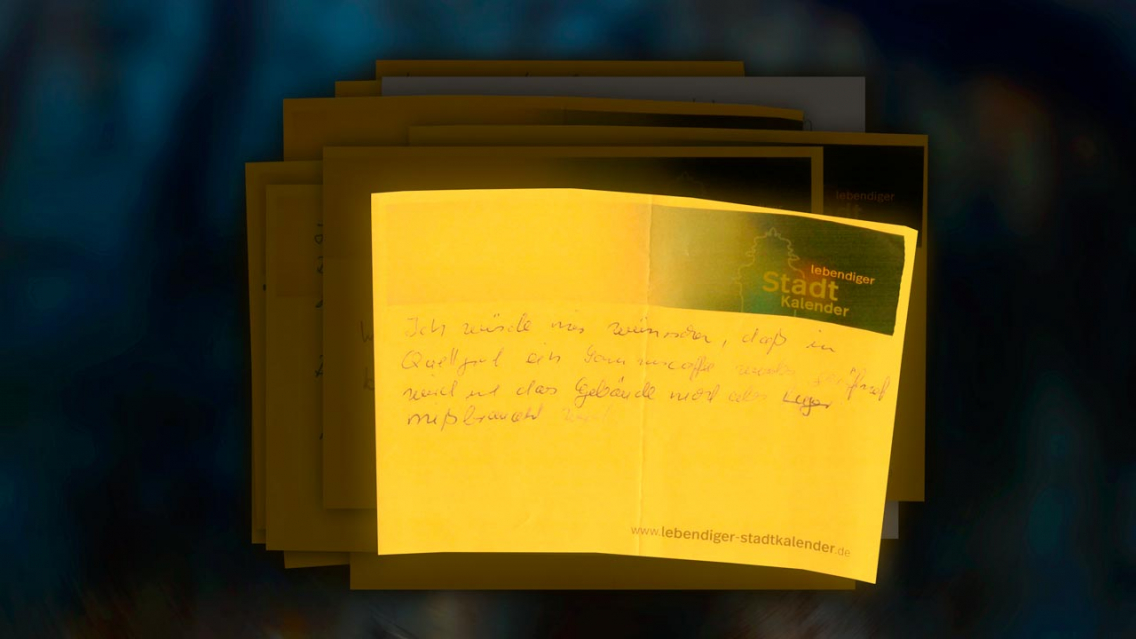 lebendiger
lebendiger
Stadt
Kalender
Ich würde mir wünschen, daß in
ein Sommercaffe
wird u das Gebäude nicht als Lager
mißbraucht wird
www.lebendiger-stadtkalender.de